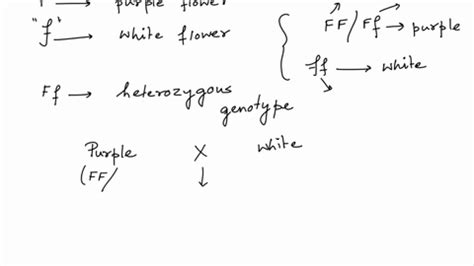 purple flower
"f" → white flower
FF/Ff → purple
ff → white
Ff → heterozygous
genotype
Purple X white
(FF/ ↓